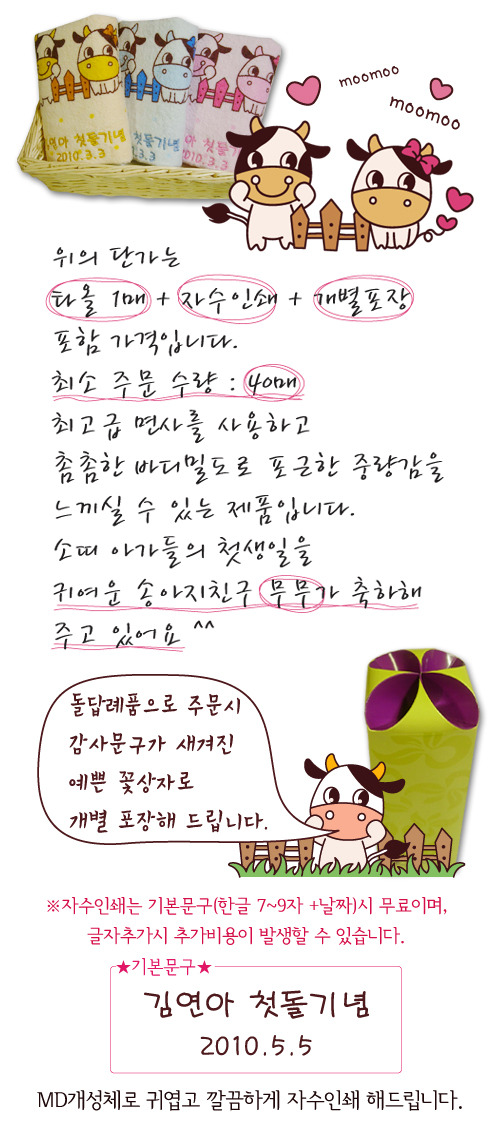 김연아 첫돌기념
2010.3.3
첫돌기념
3.3
아 첫돌기
2010.3.3
moomoo
moomoo
위의 단가는
타올 1매 + 자수인쇄 + 개별포장
포함 가격입니다.
최소 주문 수량 : 40매
최고급 면사를 사용하고
촘촘한 바디밀도로 포근한 중량감을
느끼실 수 있는 제품입니다.
소띠 아가들의 첫생일을
귀여운 송아지친구 무무가 축하해
주고 있어요 ^^
돌답례품으로 주문시
감사문구가 새겨진
예쁜 꽃상자로
개별 포장해 드립니다.
※자수인쇄는 기본문구(한글 7~9자 +날짜)시 무료이며,
글자추가시 추가비용이 발생할 수 있습니다.
★기본문구★
김연아 첫돌기념
2010.5.5
MD개성체로 귀엽고 깔끔하게 자수인쇄 해드립니다.